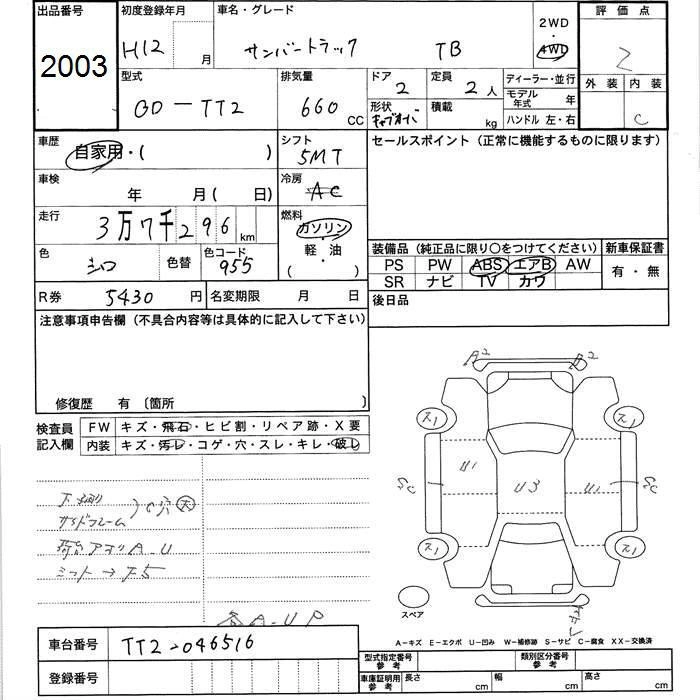 出品番号 初度登録年月 車名・グレード 2WD・4WD 評価点
2003 H12 月 サンバートラック TB 2
型式 排気量 ドア 定員 ディーラー・並行 外装 内装
GD-TT2 660 CC 2 2人 モデル年式 年 C
形状 キャブオーバ 積載 kg ハンドル 左・右
車歴 自家用・( ) シフト 5MT セールスポイント(正常に機能するものに限ります)
車検 年 月( 日) 冷房 AC
走行 3万7千296 km 燃料 ガソリン・軽・油 ( )
色 シロ 色替 色コード 955
装備品(純正品に限り〇をつけてください) 新車保証書
PS PW ABS エアB AW 有・無
SR ナビ TV カワ
R券 5430 円 名変期限 月 日 後日品
注意事項申告欄(不具合内容等は具体的に記入して下さい)
修復歴 有 〔箇所 〕
検査員記入欄 FW キズ・飛石・ヒビ割・リペア跡・X要
内装 キズ・汚レ・コゲ・穴・スレ・キレ・破レ
A2 A2
ス1 ス1
U1 U3 U1
SC SC
ス1 ス1
下廻り
サイドフレーム C穴 大
荷台アオリ A-U
ミット→F5
A-U P
スペア
A-キズ E-エクボ U-凹み W-補修跡 S-サビ C-腐食 XX-交換済
車台番号 TT2-046516
登録番号
型式指定番号 参考 類別区分番号 参考
車庫証明用 参考 長さ cm 幅 cm 高さ cm